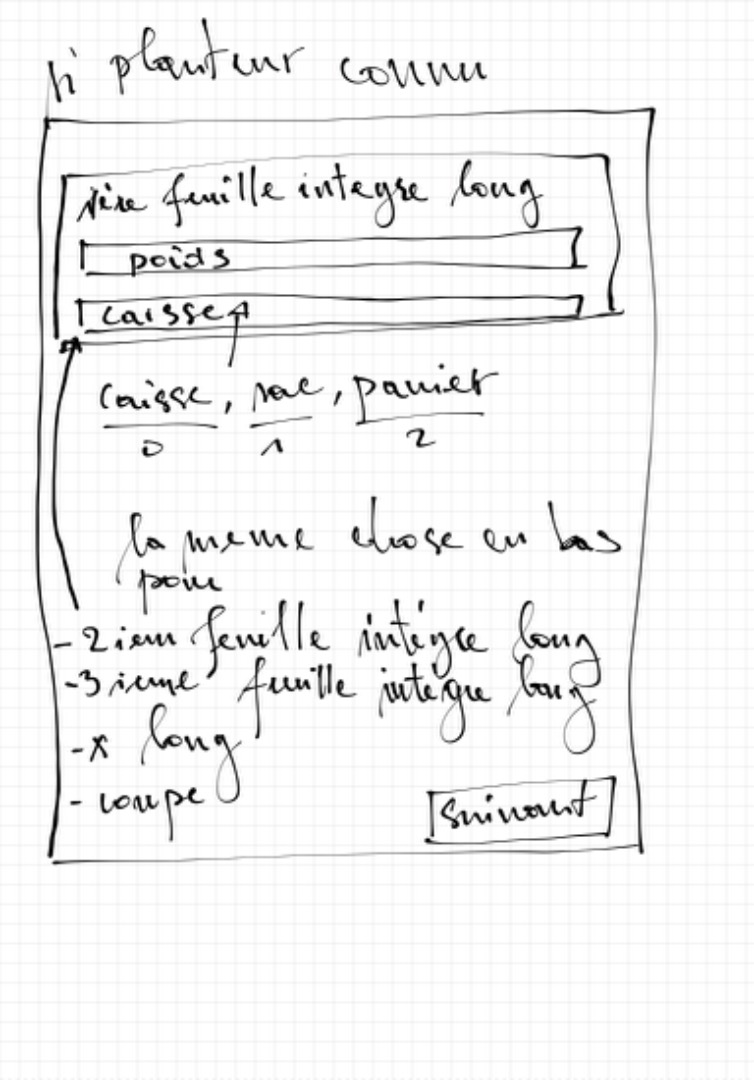 si planteur connu
1ière feuille integre long
poids
caisse
caisse, sac, panier
0 1 2
la meme chose en bas
pour
- 2iem feuille intégre long
- 3ieme feuille intégre long
- x long
- coupe
Suivant